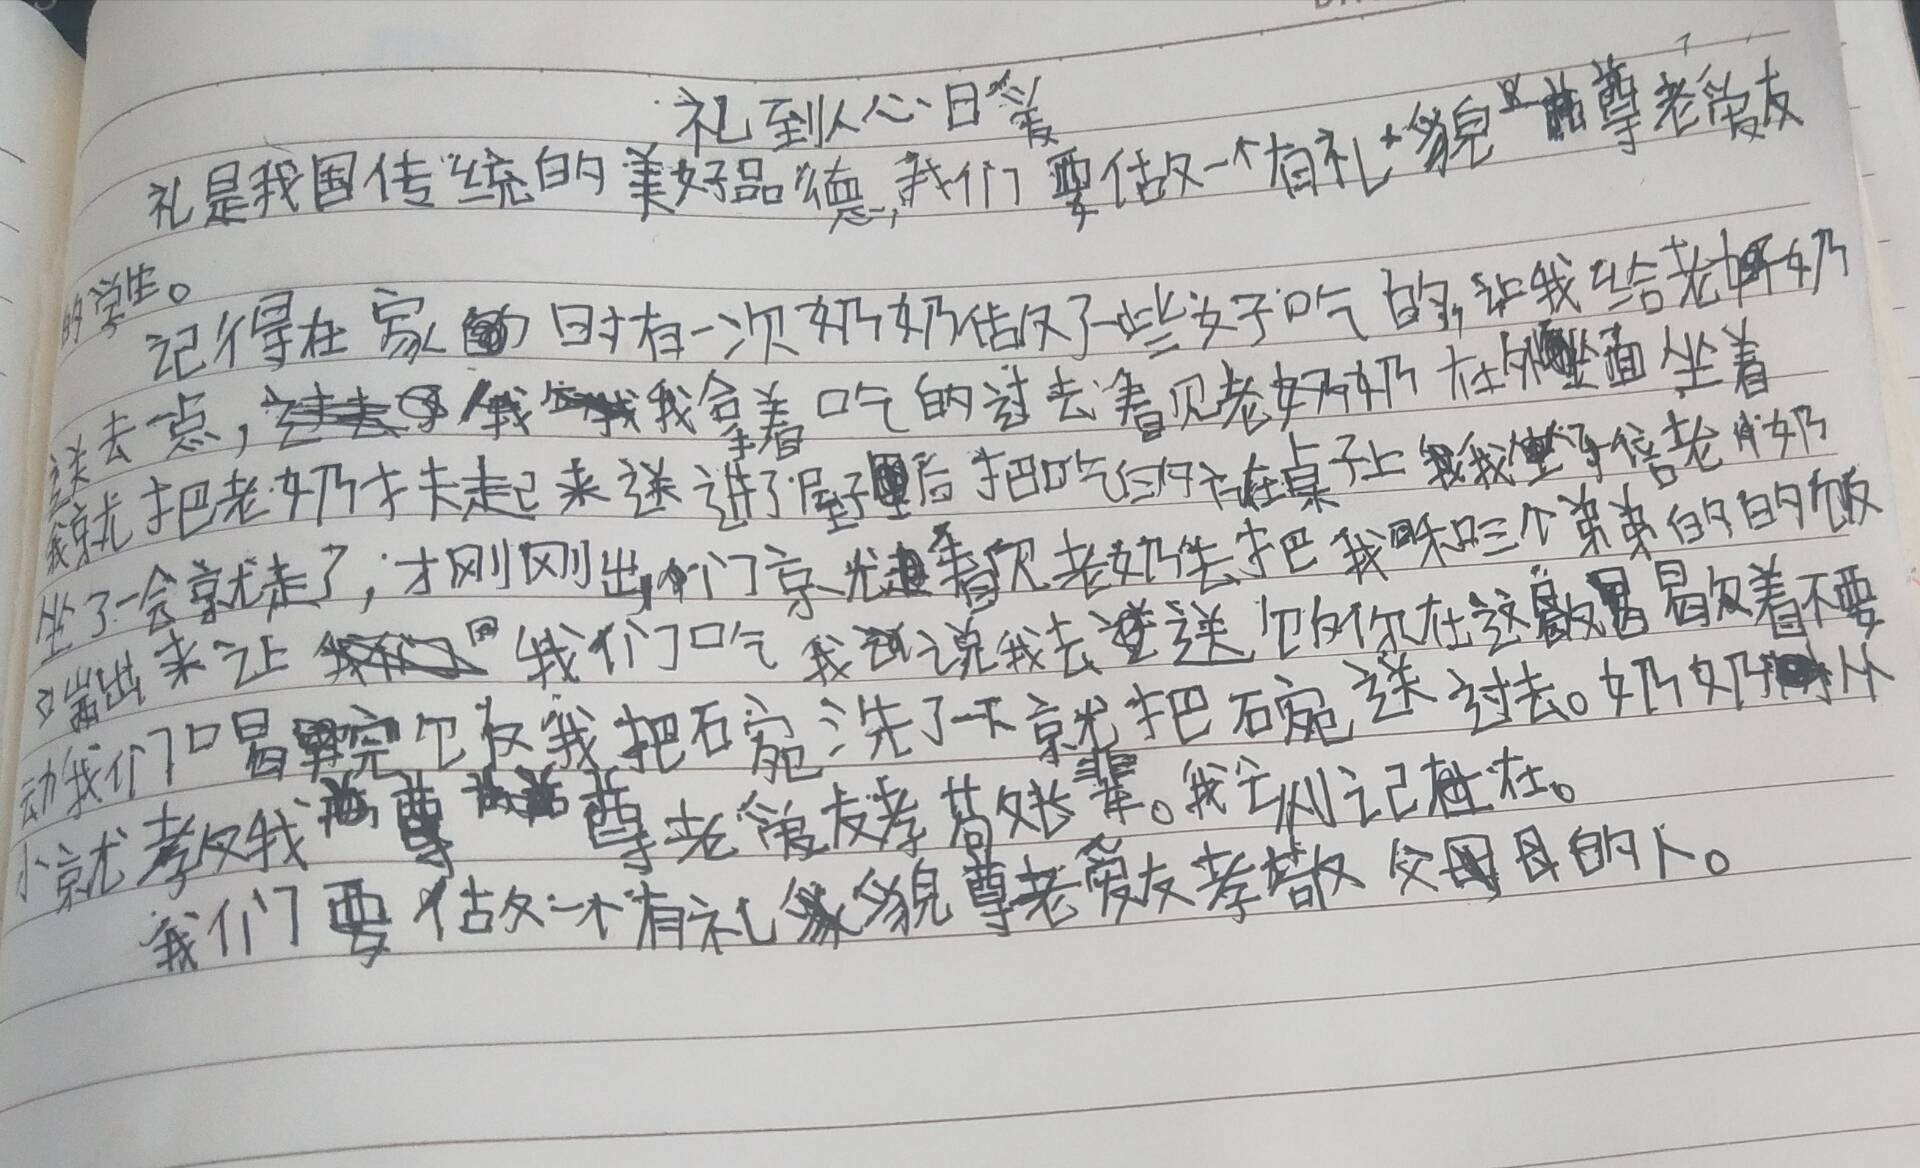 礼到人心日暖
礼是我国传统的美好品德,我们要做一个有礼貌尊老爱友
的学生。
记得在家的时有一次奶奶做了一些好吃的,让我给老奶奶
送去一点,我拿着吃的过去看见老奶奶在外面坐着
我就把老奶扶起来送进了屋子里后把吃的放在桌子上我倍老奶
坐了一会就走了,才刚刚出门就看见老奶先把我和三个弟弟的的饭
端出来让我们吃我说我去送饭你在这喝着不要
动我们喝完饭我把碗洗了一下就把碗送过去。奶奶从
小就孝教我尊老爱友孝敬长辈。我牢刻记在。
我们要做一个有礼貌尊老爱友孝敬父母的人。